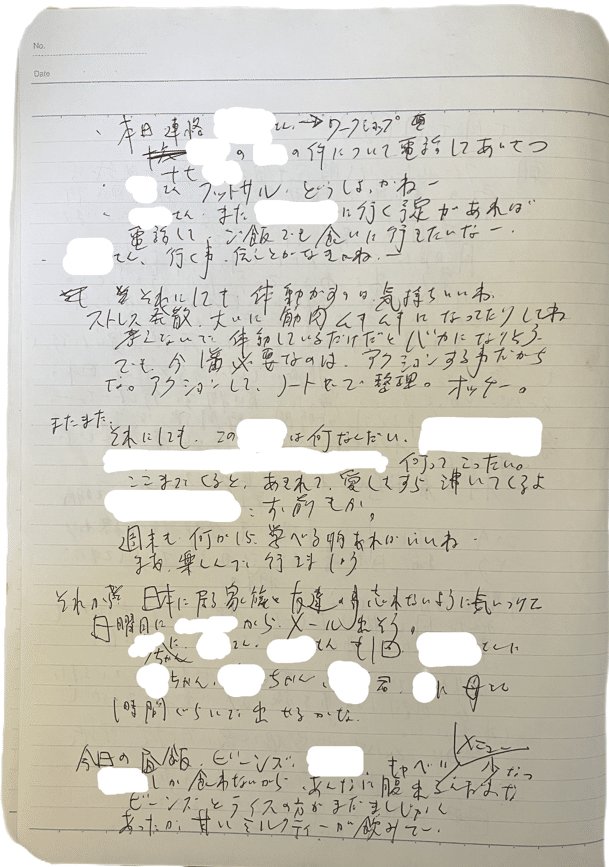 No.
Date
・本日連絡 さん→ワークショップ
の の件について電話してあいさつ
・ さん フットサル、どうしよっかねー
・ さん、また に行く予定があれば
電話して、ご飯でも食いに行きたいなー。
- さん、行く事、伝えとかなきゃね。
それにしても体動かすのは気持ちいいね。
ストレス発散、大いに筋肉ムキムキになってたりしてね
考えないで、体動しているだけだとバカになりそう
でも、今1番必要なのは、アクションする事だから
な。アクションして、ノートで整理。オッケー。
またまた、
それにしても、この は何なんだい。
何てこったい。
ここまでくると、あきれて、愛しすら沸いてくるよ
お前もか。
週末も何か1つ学べる物あればいいね
まあ、楽しんで行きましょう
それから 日本に居る家族と友達 忘れないように気いつけて
日曜日に から メール出そう。
ちゃん に、 さん、 さん も1回、 さんに
ちゃん、 ちゃん、 君、 に 母さん
1時間ぐらいで出せるかな。
今日の昼飯、ビーンズ、 キャベツ メニュー 少なっ
しか食わないから、あんなに腹
ビーンズとライスの方がまだましじゃん
あったか甘いミルクティーが飲みてー